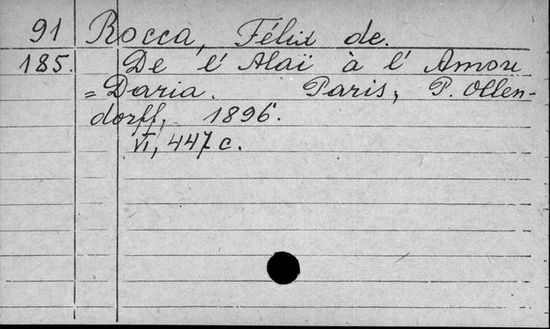 91 Rocca, Félix de.
185. De l'Alaï à l'Amou
=Daria. Paris, P. Ollen-
dorff, 1896.
VI, 447 c.